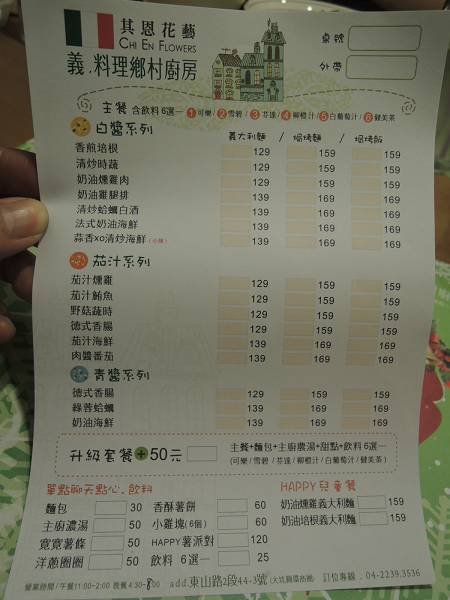 其恩花藝
CHI EN FLOWERS
義.料理鄉村廚房
桌號
外帶
主餐 含飲料 6選一 1可樂/2雪碧/3芬達/4柳橙汁/5白葡萄汁/6健美茶
白醬系列 義大利麵 / 焗烤麵 / 焗烤飯
香煎培根 129 159 159
清炒時蔬 129 159 159
奶油燻雞肉 129 159 159
奶油雞腿排 139 169 169
清炒蛤蠣白酒 139 169 169
法式奶油海鮮 139 169 169
蒜香xo清炒海鮮(小辣) 139 169 169
茄汁系列
茄汁燻雞 129 159 159
茄汁鮪魚 129 159 159
野菇蔬時 129 159 159
德式香腸 129 159 159
茄汁海鮮 139 169 169
肉醬番茄 139 169 169
青醬系列
德式香腸 129 159 159
綠蓉蛤蠣 139 169 169
奶油海鮮 139 169 169
升級套餐+50元 主餐+麵包+主廚濃湯+甜點+飲料 6選一
(可樂/雪碧/芬達/柳橙汁/白葡萄汁/健美茶)
單點聊天點心、飲料 HAPPY兒童餐
麵包 30 香酥薯餅 60 奶油燻雞義大利麵 159
主廚濃湯 50 小雞塊(6個) 60 奶油培根義大利麵 159
寬寬薯條 50 HAPPY薯派對 120
洋蔥圈圈 50 飲料 6選一 25
營業時間/午餐11:00-2:00 晚餐4:30-8:00 add.東山路2段44-3號(大坑圓環商圈) 訂位專線.04-2239.3536